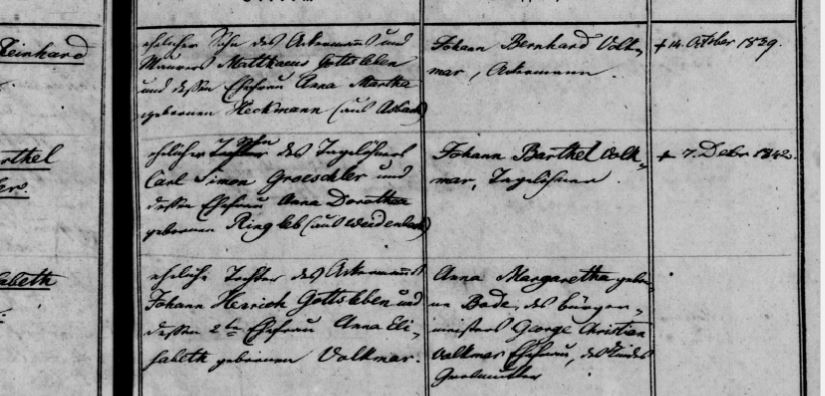 Reinhard
ehelicher Sohn des Ackermanns und
Maurers Matthaeus Gottsleben
und dessen Ehefrau Anna Martha
gebornen Heckmann (aus Asbach)
Johann Bernhard Volk-
mar, Ackermann.
+ 14. October 1839.
rthel
ehelicher Sohn des Tagelöhners
Carl Simon Groeschler und
dessen Ehefrau Anna Dorothea
gebornen Ringleb (aus Weidenbach)
Johann Barthel Volk-
mar, Tagelöhner.
+ 7. Debr 1842.
sabeth
eheliche Tochter des Ackermanns
Johann Henrich Gottsleben und
dessen 2ten Ehefrau Anna Eli-
sabeth gebornen Volkmar.
Anna Margaretha gebor-
ne Bode, des Bürger-
meisters George Christian
Volkmar Ehefrau, des Kindes
Großmutter